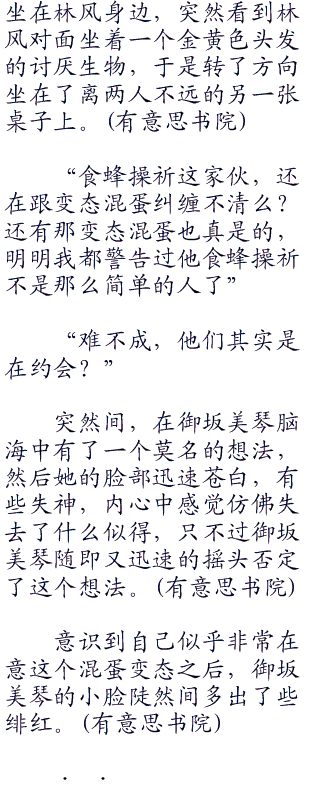 坐在林风身边，突然看到林
风对面坐着一个金黄色头发
的讨厌生物，于是转了方向
坐在了离两人不远的另一张
桌子上。(有意思书院)
“食蜂操祈这家伙，还
在跟变态混蛋纠缠不清么？
还有那变态混蛋也真是的，
明明我都警告过他食蜂操祈
不是那么简单的人了”
“难不成，他们其实是
在约会？”
突然间，在御坂美琴脑
海中有了一个莫名的想法，
然后她的脸部迅速苍白，有
些失神，内心中感觉仿佛失
去了什么似得，只不过御坂
美琴随即又迅速的摇头否定
了这个想法。(有意思书院)
意识到自己似乎非常在
意这个混蛋变态之后，御坂
美琴的小脸陡然间多出了些
绯红。(有意思书院)
．．